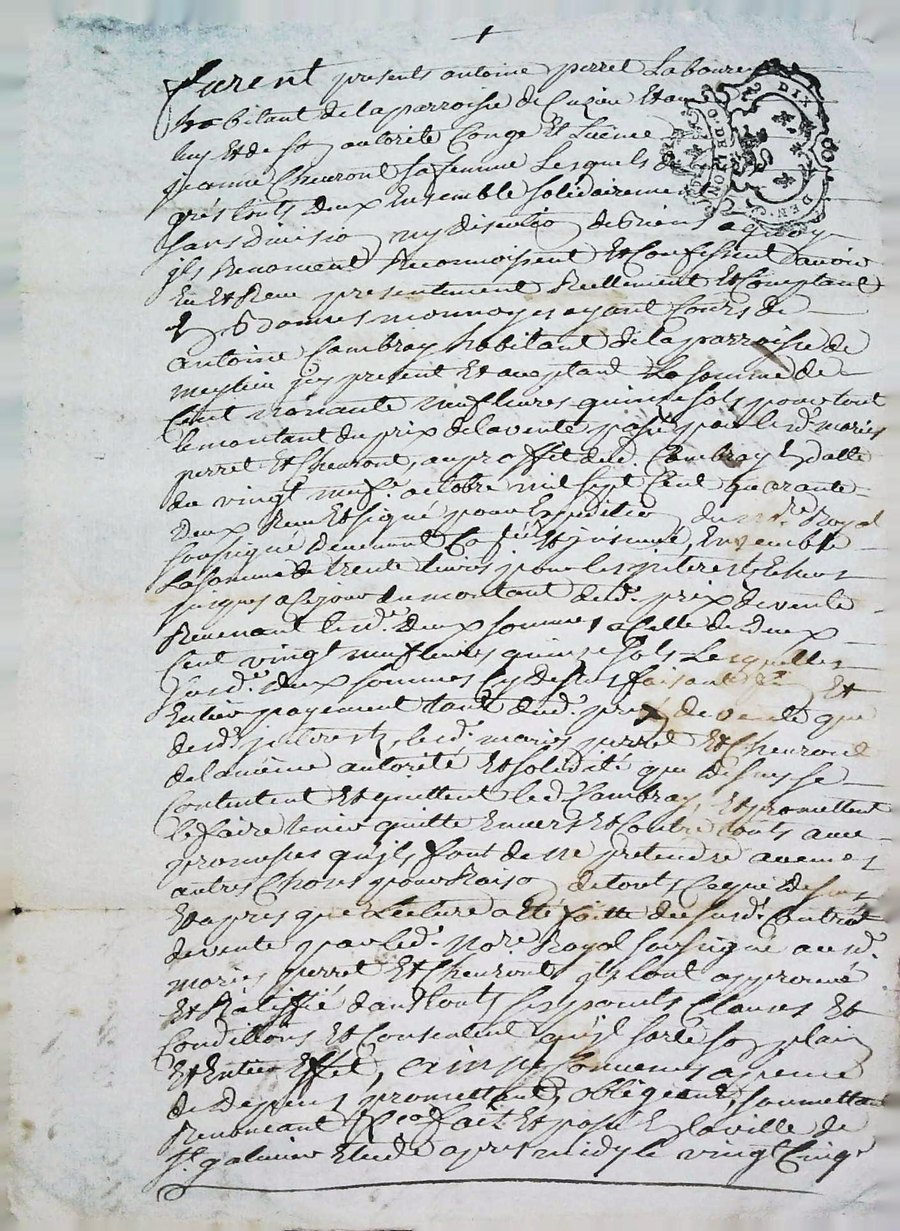 +
furent presents antoine perret Laboureur
habitant de la parroisse de Cuzieu Et au
luy Et de sa autorité Congé Et Licence
jeanne Cheuront sa femme Lesquels de
grés touts deux Ensemble solidairement
sans divisio ny discutio de biens a quoy
jls Renoncent Reconnoissent Et Confessent d'avoir
Eu Et Receu presentement Reellement Et Comptant
Et bonnes monnoyes ayant Cours de
antoine Cambray habitant de la parroisse de
meylieu jcy present Et aceptant La somme de
Cent nonante neuf livres quinze sols pour tout
le montant du prix de la vente passé par les d. mariés
perret Et Cheuront, au proffit dud. Cambray En datte
du vingt neuf octobre mil sept Cent quarante
Deux Receu Et signé pour Expeditio du no.re Royal
soussigné Ensemble
La somme de trente livres pour les jnterests Echeus
jusques a Ce jour du montant dud. prix de vente
Revenant lesd. Deux sommes a Celle de Deux
Cent vingt neuf livres quinze sols Lesquelles
susd. deux sommes Cy dessus faisant Et
Entier payement tant dud. prix de vente que
desd. jnterests, lesd. mariés perret Et Cheuront
de la même autorité Et solidité que dessus se
Contentent Et quittent led. Cambray, Et promettent
le faire tenir quitte Envers Et Contre touts avec
promesses qu'jls font de ne pretendre aucunes
autres Choses pour Raiso de tout Ce que dessus
Et apres que Lecture a Eté faitte du susd. Contrat
de vente par led. no.re Royal soussigné ausd.
mariés perret Et Cheuront jls l'ont approuvé
Et Ratiffié dans touts ses points Clauses Et
Conditions Et Consentent qu'jl sorte so plain
Et Entier Effet, ainsy Convenus a peine
de depens promettant, obligeant, soumettant
Renoncant fait Et passé En la ville de
s.t galmier Etude apres midy le vingt Cinq